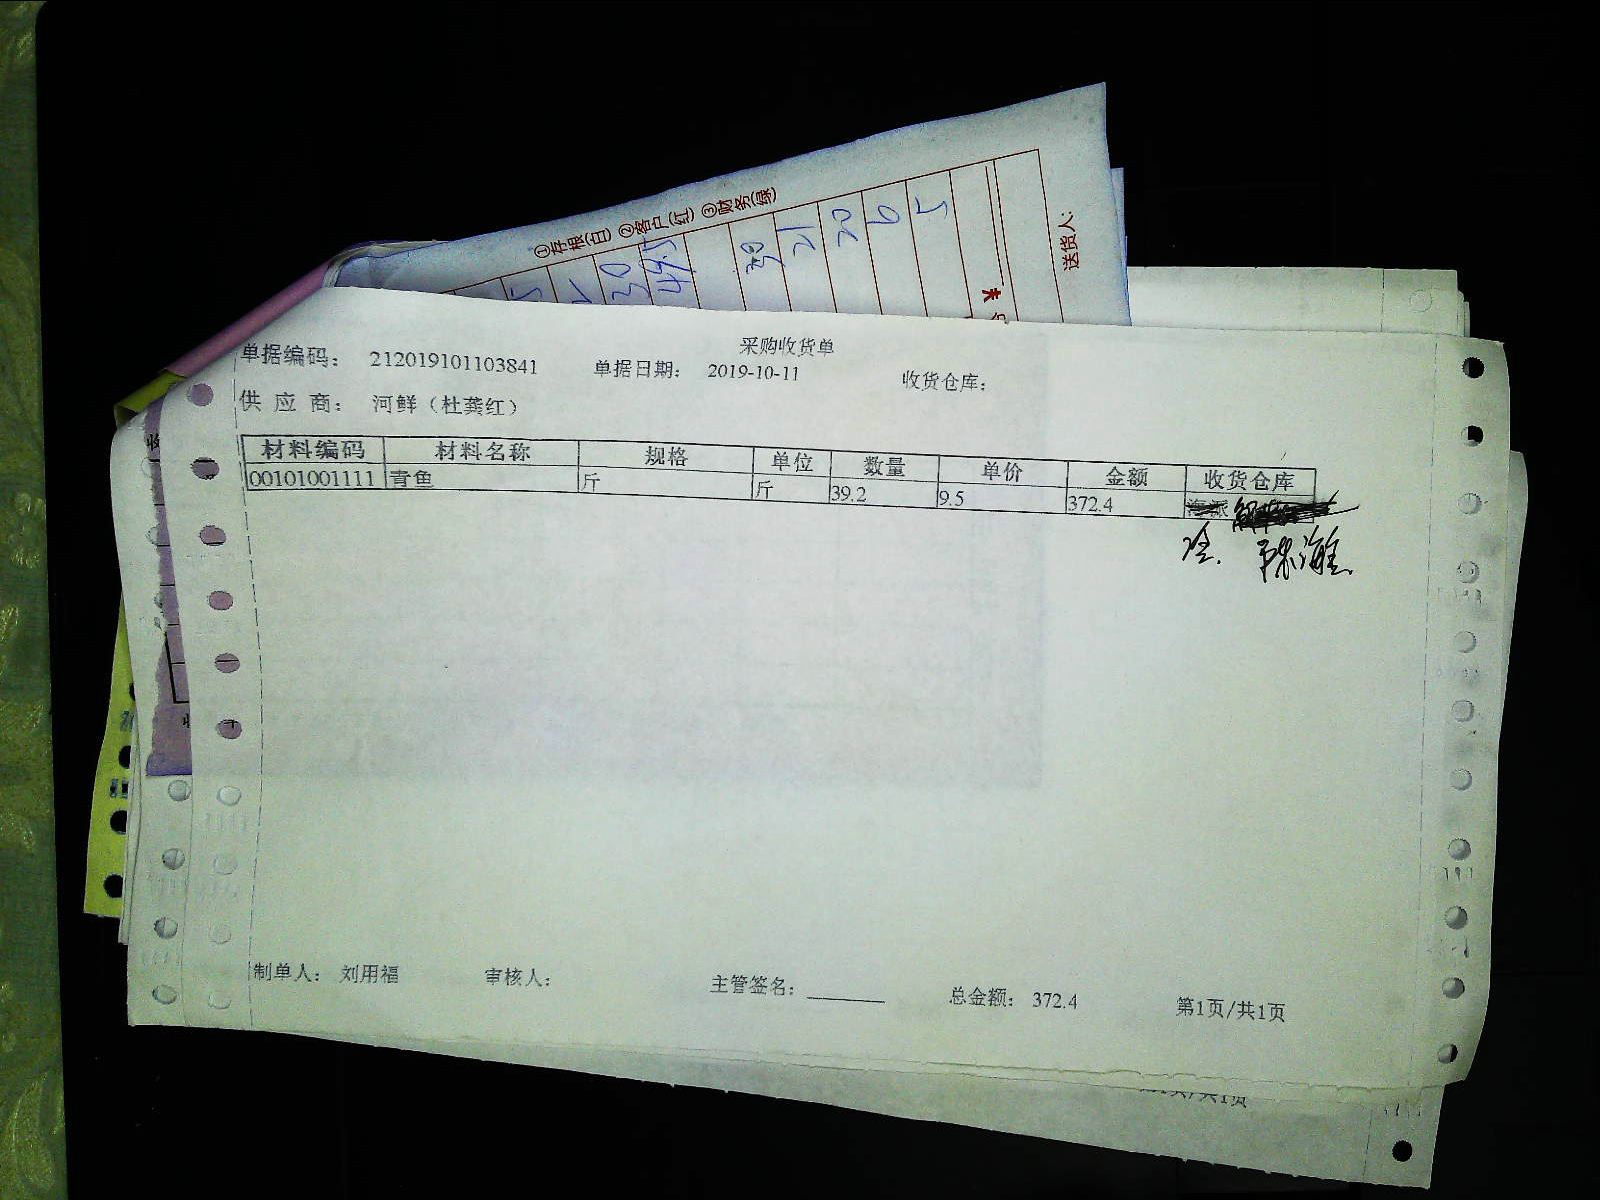 ①存根(白) ②客户(红) ③财务(绿)
送货人:
采购收货单
单据编码： 212019101103841 单据日期： 2019-10-11 收货仓库：
供 应 商： 河鲜（杜龚红）
材料编码 材料名称 规格 单位 数量 单价 金额 收货仓库
00101001111 青鱼 斤 斤 39.2 9.5 372.4
制单人： 刘用福 审核人： 主管签名： 总金额： 372.4 第1页/共1页